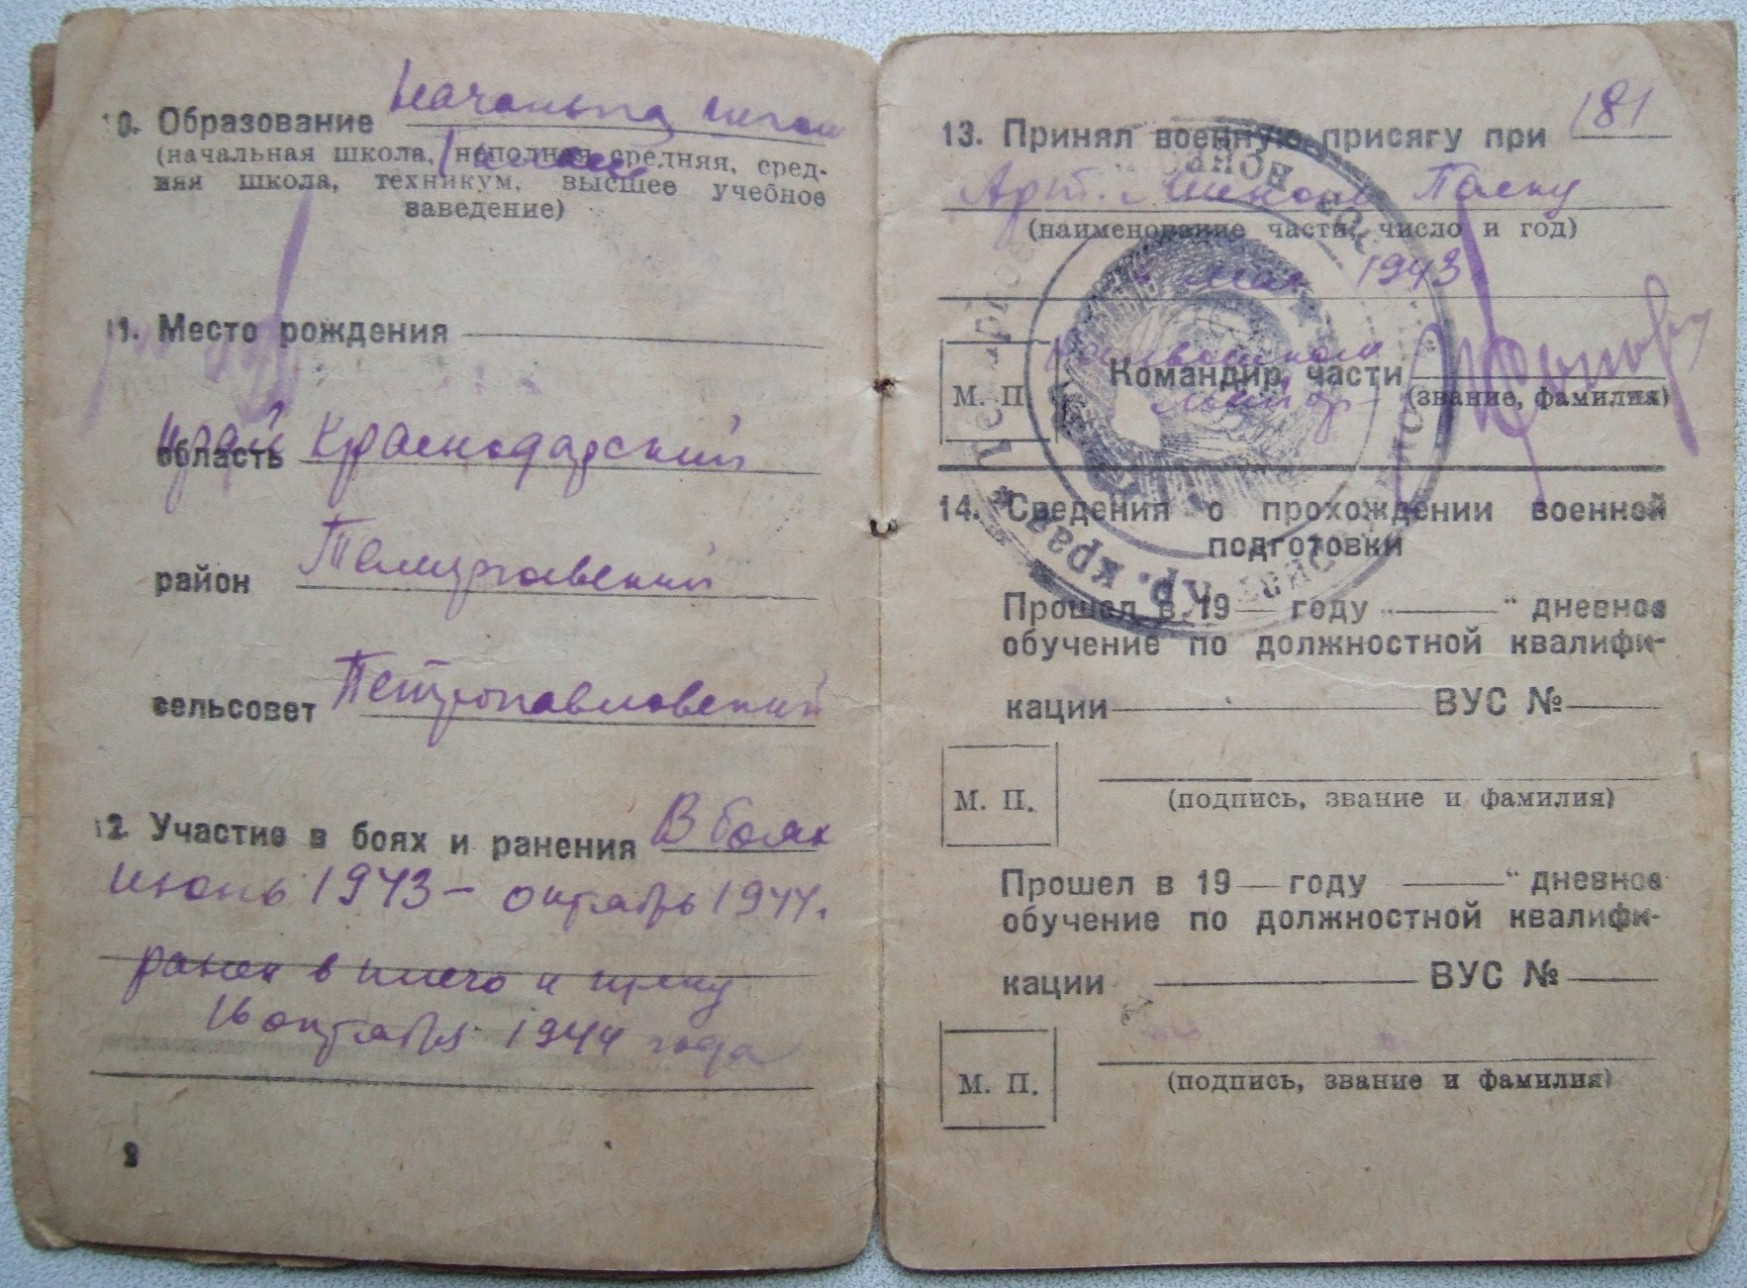 10. Образование начальна школ
(начальная школа, неполная средняя, сред-
няя школа, техникум, высшее учебное
заведение)
11. Место рождения
край
область Краснодарский
район Темиргоевский
сельсовет Петропавловский
12. Участие в боях и ранения В боях
июнь 1943 – октябрь 1944.
ранен в плечо и щеку
16 октября 1944 года
13. Принял военную присягу при 181
Арт. Мином Полку
(наименование части, число и год)
мая 1943.
М. П.
Командир части
майор
(звание, фамилия)
14. Сведения о прохождении военной
подготовки
Прошел в 19 — году „ — “ дневное
обучение по должностной квалифи-
кации — ВУС № —
М. П.
(подпись, звание и фамилия)
Прошел в 19 — году — “ дневное
обучение по должностной квалифи-
кации — ВУС № —
М. П.
(подпись, звание и фамилия)
Кр. края *